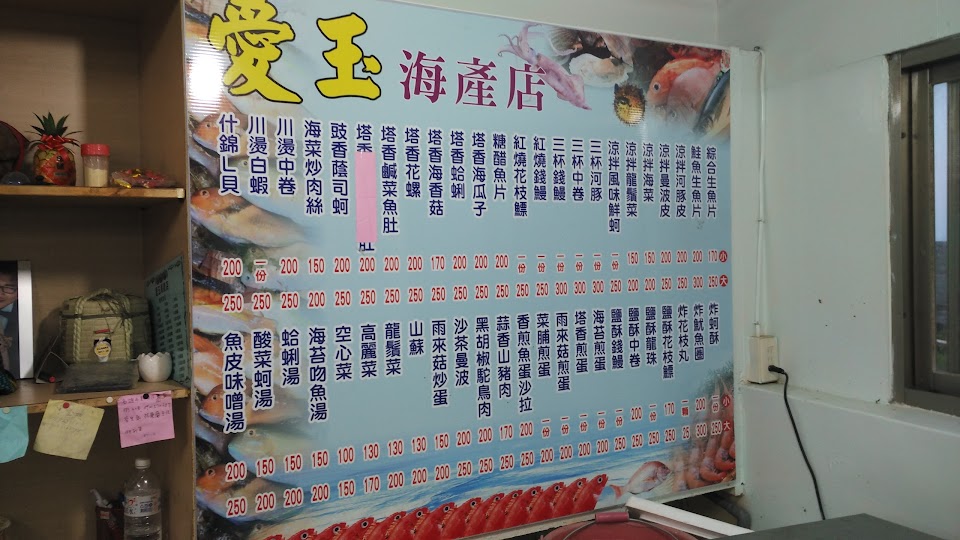 愛玉海產店
小 大
綜合生魚片 170 250
鮭魚生魚片 200 300
涼拌河豚皮 200 250
涼拌曼波皮 200 250
涼拌海菜 150 200
涼拌龍鬚菜 150 200
涼拌風味鮮蚵 一份 250
三杯河豚 一份 300
三杯中卷 一份 300
三杯錢鰻 一份 300
紅燒錢鰻 一份 250
紅燒花枝鰾 一份 250
糖醋魚片 200 250
塔香海瓜子 200 250
塔香蛤蜊 200 250
塔香海香菇 170 250
塔香花螺 200 250
塔香鹹菜魚肚 200 250
塔香 肚 200 250
豉香蔭司蚵 200 250
海菜炒肉絲 150 200
川燙中卷 200 250
川燙白蝦 一份 250
什錦ㄴ貝 200 250
小 大
炸蚵酥 一份 250
炸魷魚圈 200 300
炸花枝丸 25
鹽酥花枝鰾 170 250
鹽酥龍珠 一份 250
鹽酥中卷 200 250
鹽酥錢鰻 一份 250
海苔煎蛋 一份 200
塔香煎蛋 一份 200
雨來菇煎蛋 一份 200
菜脯煎蛋 一份 200
香煎魚蛋沙拉 200 250
蒜香山豬肉 170 250
黑胡椒駝鳥肉 200 250
沙茶曼波 200 250
雨來菇炒蛋 150 200
山蘇 130 200
龍鬚菜 130 200
高麗菜 130 170
空心菜 100 150
海苔吻魚湯 150 200
蛤蜊湯 150 200
酸菜蚵湯 150 200
魚皮味噌湯 200 250